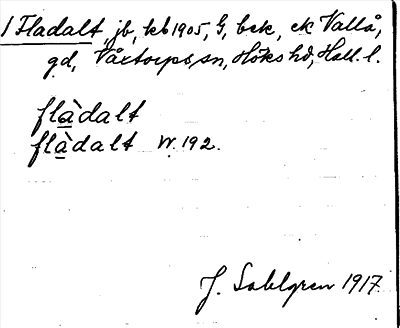 1 Fladalt, jb, kb 1905, G, bck, ck Vallå,
gd, Våxtorps, sn, Höks hd, Hall. l.
flàdalt
flàdalt W. 192.
J. Sahlgren 1917